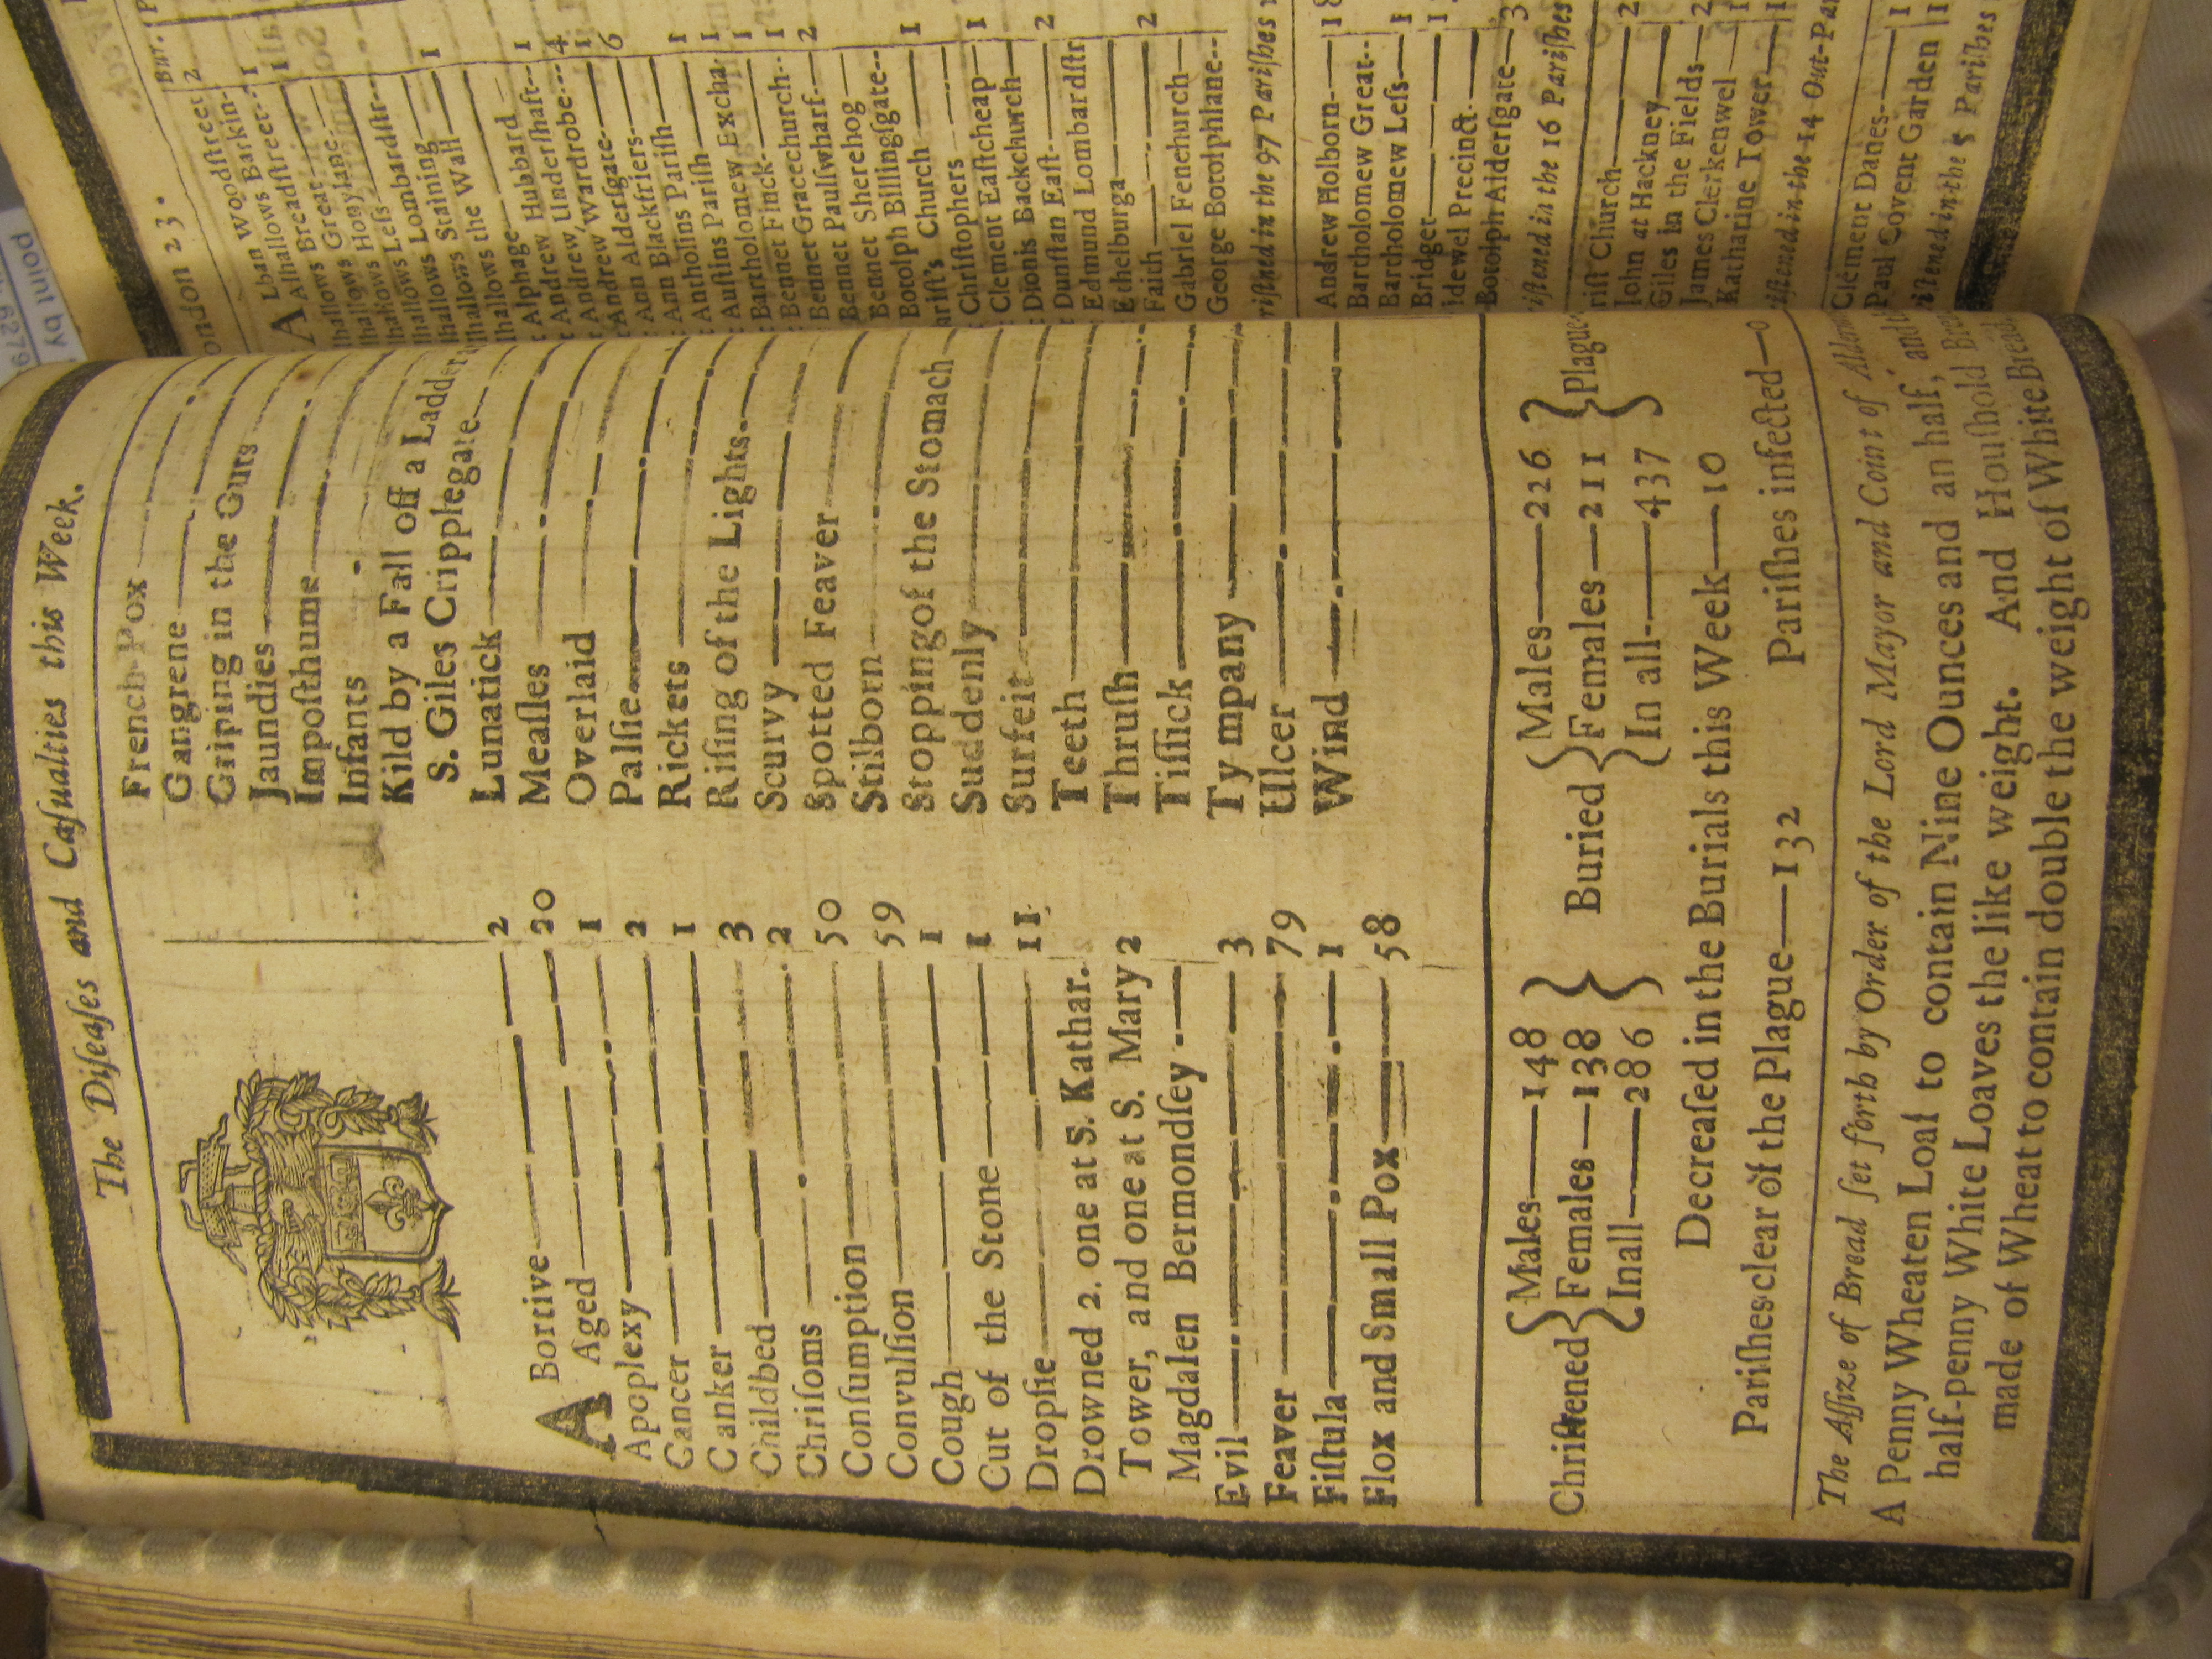 The Diſeaſes and Caſualties this Week.
ABortive 2
Aged 20
Apoplexy 1
Cancer 2
Canker 1
Childbed 3
Chriſoms 2
Conſumption 50
Convulſion 59
Cough 1
Cut of the Stone 1
Dropſie 11
Drowned 2. one at S. Kathar.
Tower, and one at S. Mary 2
Magdalen Bermondſey
Evil 3
Feaver 79
Fiſtula 1
Flox and Small Pox 58
French-Pox
Gangrene
Griping in the Guts
Jaundies
Impoſthume
Infants
Kild by a Fall off a Ladder
S. Giles Cripplegate
Lunatick
Meaſles
Overlaid
Palſie
Rickets
Riſing of the Lights
Scurvy
Spotted Feaver
Stilborn
Stopping of the Stomach
Suddenly
Surfeit
Teeth
Thruſh
Tiſſick
Ty mpany
Ulcer
Wind
Chriſtened { Males—148 Females—138 In all—286 }
Buried { Males—226 Females—211 In all—437 } Plague
Decreaſed in the Burials this Week—10
Pariſhes clear of the Plague—132 Pariſhes infected—0
The Aſſize of Bread ſet forth by Order of the Lord Mayor and Court of
A Penny Wheaten Loaf to contain Nine Ounces and an half, and
half-penny White Loaves the like weight. And Houſhold
made of Wheat to contain double the weight of White Bread
ondon 23.
Bur.
Lban Woodſtreet 2
Alhallows Barkin-
Alhallows Breadſtreet 1
hallows Great 1
hallows Honylane
hallows Leſs
hallows Lombardſtr
hallows Staining
hallows the Wall 1
Alphage
Andrew Hubbard
Andrew Underſhaft 1
Andrew Wardrobe 4
Ann Alderſgate 1
Ann Blackfriers 6
Antholins Pariſh
Auſtins Pariſh 1
Bartholomew Excha 1
Bennet Finck 1
Bennet Gracechurch 1
Bennet Paulſwharf 2
Bennet Sherehog
Botolph Billingſgate
Chriſt's Church 1
Chriſtophers
Clement Eaſtcheap 1
Dionis Backchurch
Dunſtan Eaſt 2
Edmund Lombardſtr
Ethelburga
Faith 2
Gabriel Fenchurch
George Botolphlane
riſtned in the 97 Pariſhes
Andrew Holborn
Bartholomew Great
Bartholomew Leſs 1
Bridget
idewel Precinct
Botolph Alderſgate 3
iſtened in the 16 Pariſhes
riſt Church
John at Hackney 2
Giles in the Fields
James Clerkenwel 2
Katharine Tower 1
iſtened in the 14 Out-Pa
Clement Danes
Paul Covent Garden 1
iſtened in the 5 Pariſhes
point by
6279